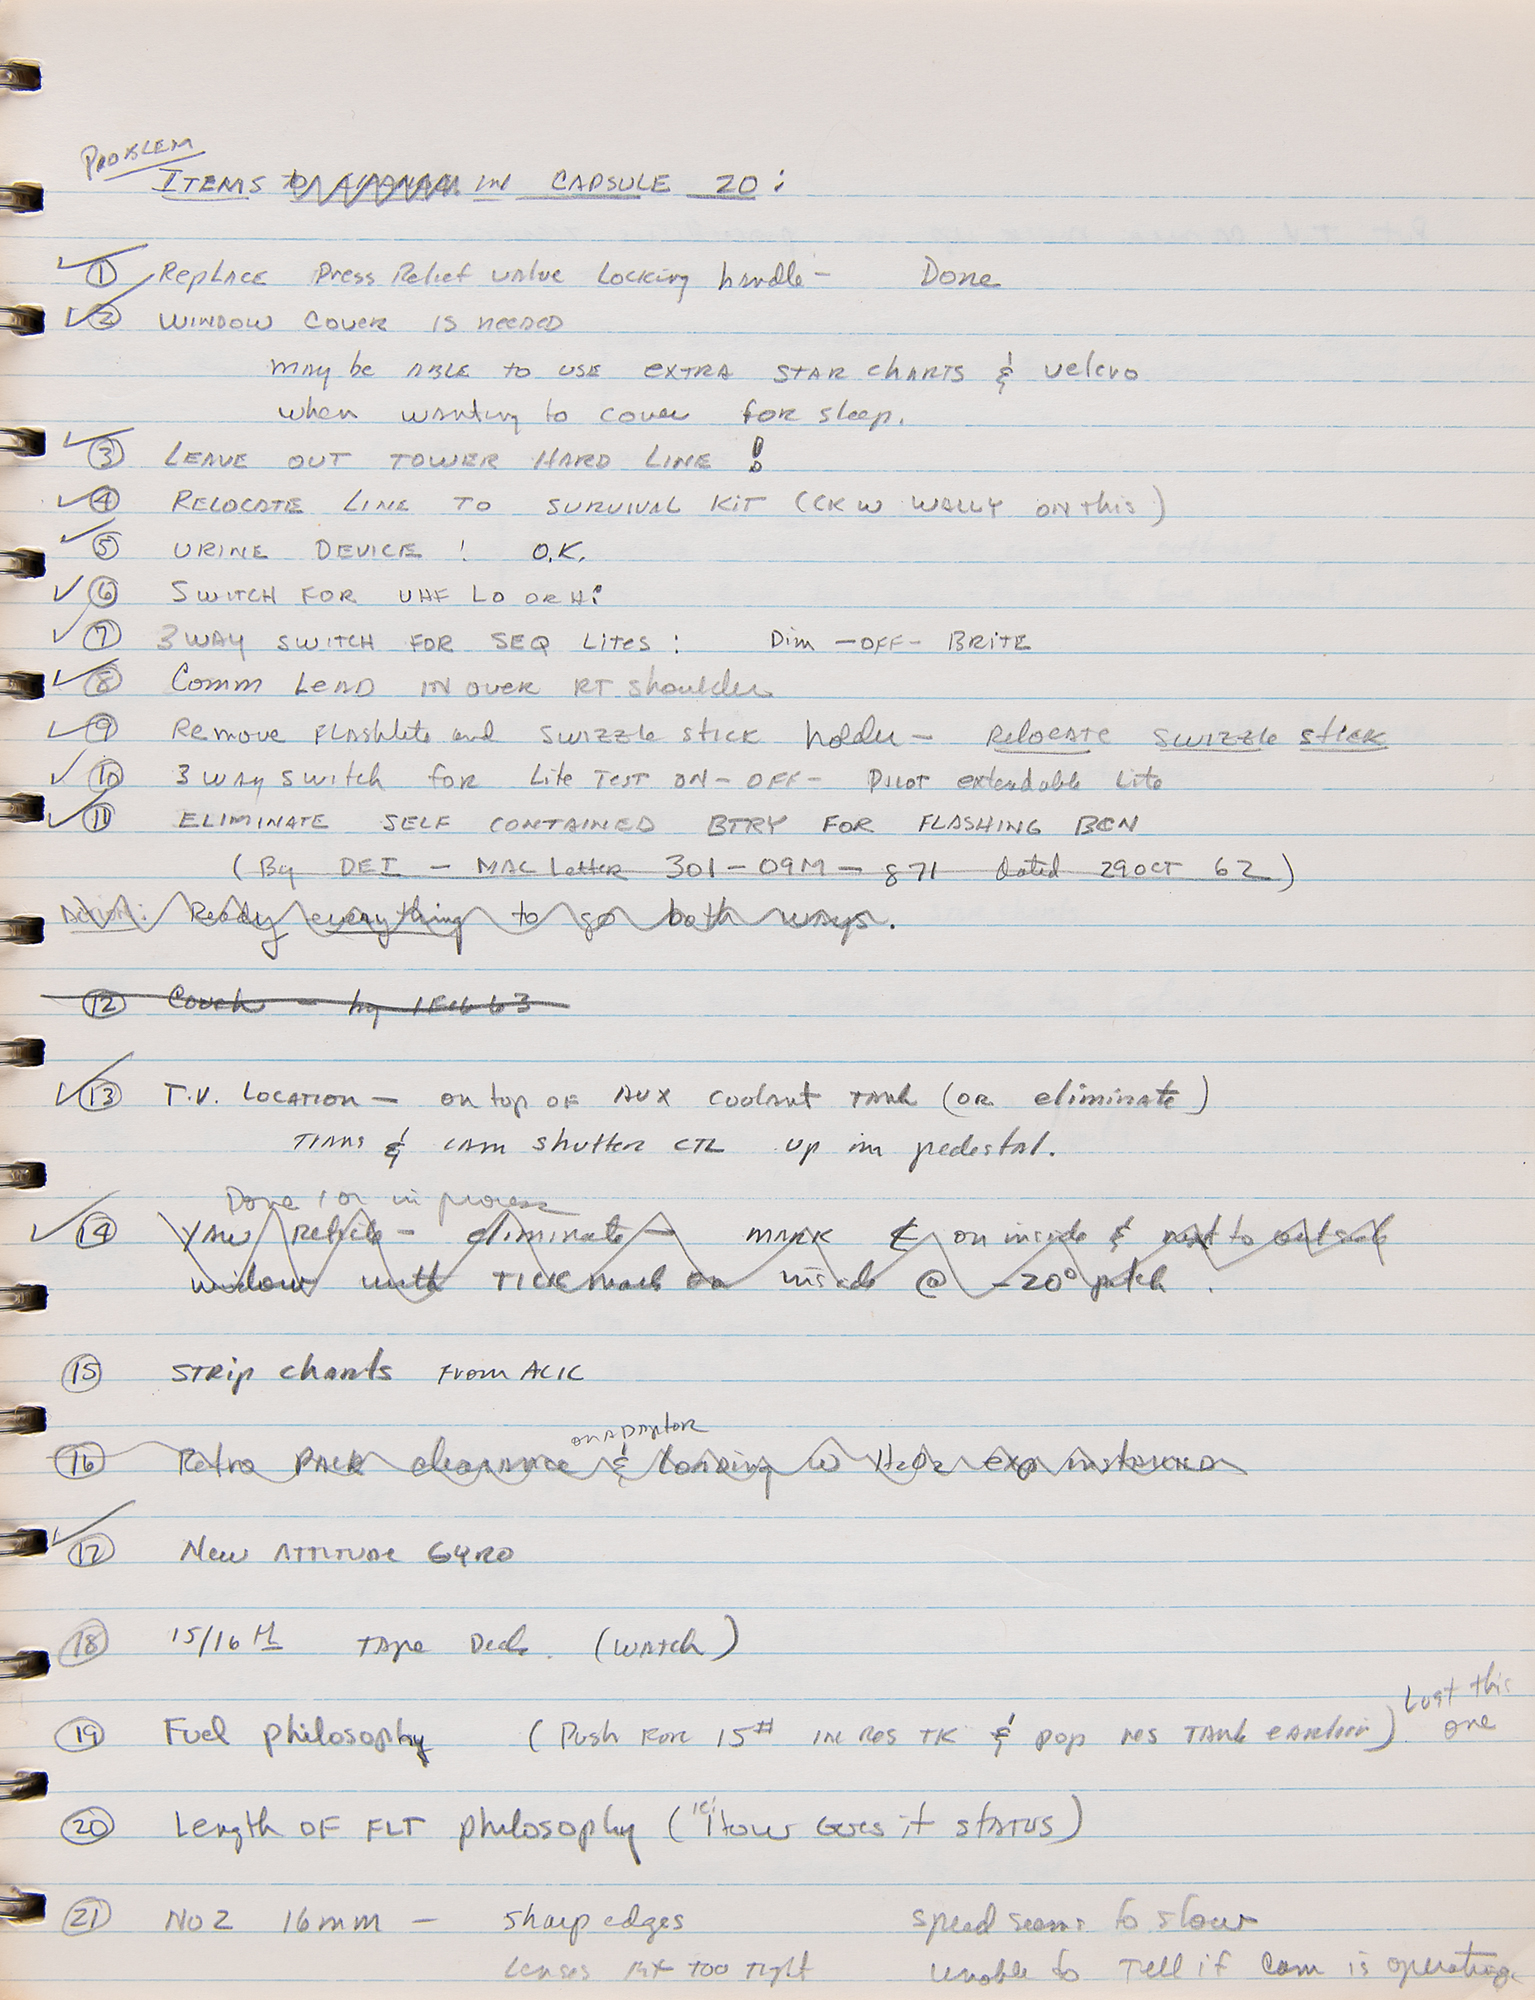 PROBLEM
ITEMS in CAPSULE 20:
① Replace Press Relief valve Locking handle – Done
② WINDOW Cover is needed
may be ABLE to use extra STAR charts & velcro
when wanting to cover for sleep.
③ LEAVE OUT TOWER HARD LINE !
④ RELOCATE LINE TO SURVIVAL KIT (CK W WALLY ON this)
⑤ URINE DEVICE ! O.K.
⑥ SWITCH FOR UHF LO OR Hi
⑦ 3 WAY SWITCH FOR SEQ LITES: Dim – OFF – BRITE
⑧ Comm LEAD IN over RT shoulder
⑨ Remove FLAShlite and Swizzle stick holder – Relocate Swizzle stick
⑩ 3 way switch for Lite Test ON – OFF – Pilot extendable Lite
⑪ ELIMINATE SELF CONTAINED BTRY FOR FLASHING BCN
(By DEI – MAC Letter 301-09M-871 dated 29 OCT 62)
Action: Ready everything to go both ways.
⑫ Couch – by 1 Feb 63
⑬ T.V. LOCATION – on top OF AUX coolant TANK (OR eliminate)
TRANS & CAM shutter CTL up in pedestal.
Done / or in process
⑭ YAW Reticle – eliminate – MARK ℄ on inside & next to outside
window with TICK mark on inside @ -20° pitch.
⑮ STRIP charts From ACIC
on ADAptor
⑯ Retro PACK clearance & Loading W H2O2 exp installed
⑰ New ATTITUDE GYRO
⑱ 15/16 TAPE Deck. (WATCH)
⑲ Fuel philosophy (Push FOR 15# IN Res TK & pop res TANK earlier) Lost this
one
⑳ Length OF FLT philosophy ("How Goes it STATUS)
㉑ No 2 16mm – Sharp edges speed seems to slow
Lenses TOO Tight unable to Tell if Cam is operating